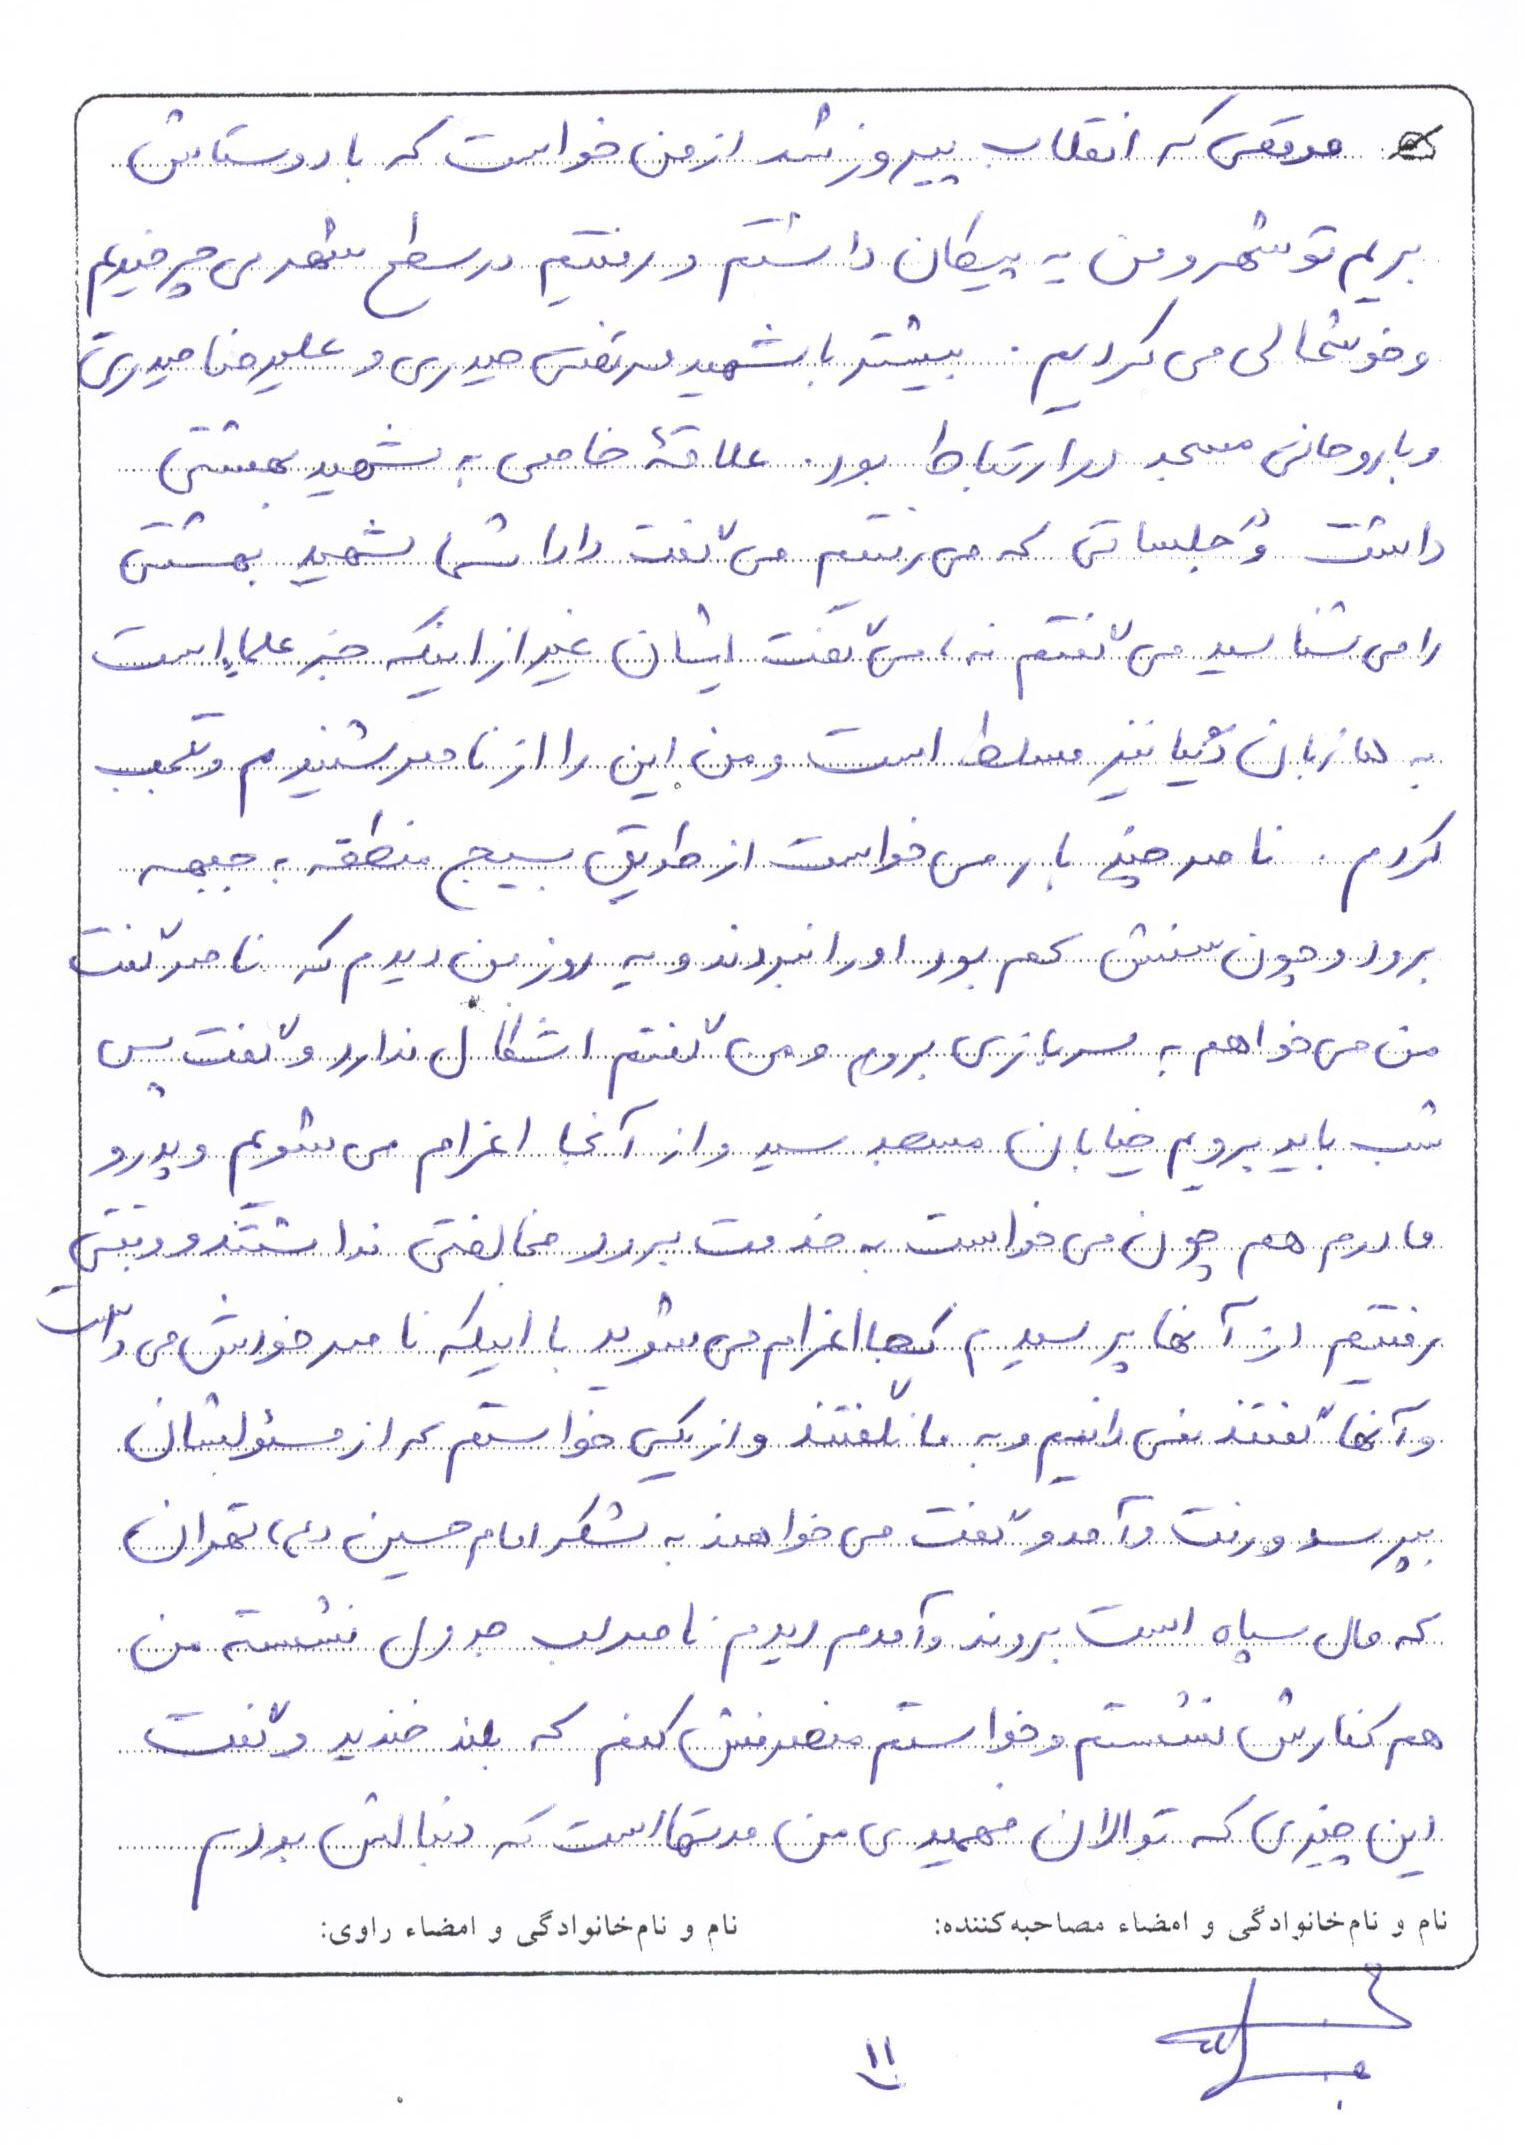 موقعی که انقلاب پیروز شد از من خواست که با دوستاش
بریم تو شهر و من یه پیکان داشتم و رفتیم در سطح شهر می چرخیدیم
و خوشحالی می کردیم. بیشتر با شهید مرتضی حیدری و علیرضا حیدری
و با روحانی مسجد در ارتباط بود. علاقهٔ خاصی به شهید بهشتی
داشت و جلساتی که می رفتیم می گفت دادا شما شهید بهشتی
را می شناسید می گفتم نه، می گفت ایشان غیر از اینکه جزء علماء است
به زبان دنیا نیز مسلط است و من این را از ناصر شنیدم و تعجب
کردم. ناصر چند بار می خواست از طریق بسیج منطقه به جبهه
برود و چون سنش کم بود او را نبردند و یه روز من دیدم که ناصر گفت
من می خواهم به سربازی بروم و من گفتم اشکال ندارد و گفت پس
شب باید برویم خیابان مسجد سید و از آنجا اعزام می شویم و پدر و
مادرم هم چون می خواست به خدمت برود مخالفتی نداشتند و وقتی
رفتیم از آنها پرسیدم کجا اعزام می شوید با اینکه ناصر خودش می دانست
و آنها گفتند نمی دانیم و به ما نگفتند و از یکی خواستم که از مسئولشان
بپرسد و رفت و آمد و گفت می خواهند به لشکر امام حسین (ع) تهران
که مال سپاه است بروند و آمدم دیدم ناصر لب جدول نشسته من
هم کنارش نشستم و خواستم منصرفش کنم که بلند خندید و گفت
این چیزی که تو الان فهمیدی من مدتهاست که دنبالش بودم
نام و نام‌خانوادگی و امضاء مصاحبه‌کننده: نام و نام‌خانوادگی و امضاء راوی:
۱۱